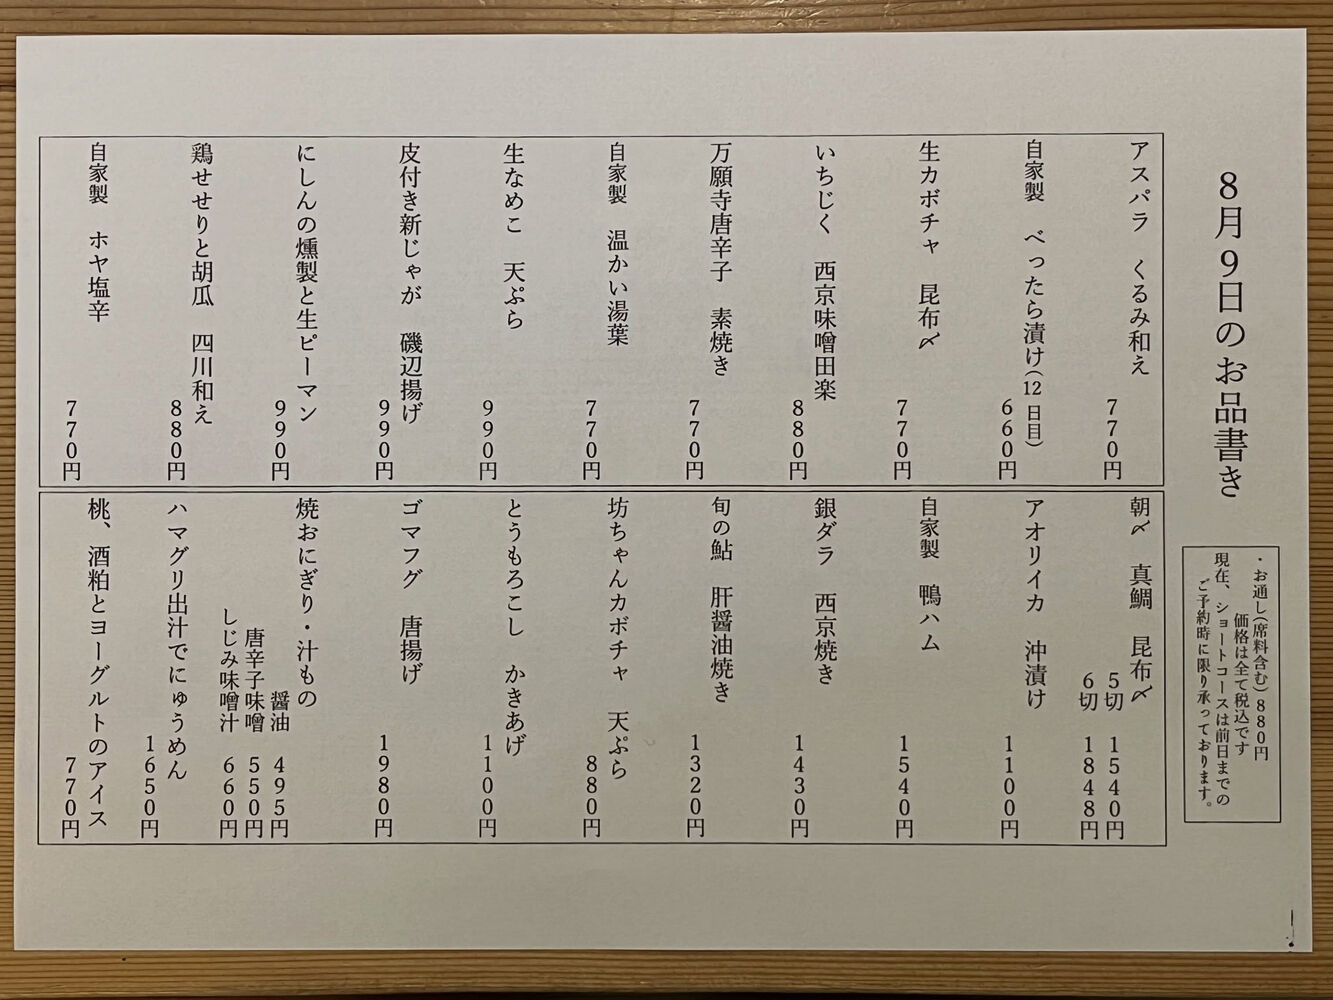 8月9日のお品書き
・お通し(席料含む)880円
価格は全て税込です
現在、ショートコースは前日までの
ご予約時に限り承っております。
アスパラ くるみ和え
770円
自家製 べったら漬け(12日目)
660円
生カボチャ 昆布〆
770円
いちじく 西京味噌田楽
880円
万願寺唐辛子 素焼き
770円
自家製 温かい湯葉
770円
生なめこ 天ぷら
990円
皮付き新じゃが 磯辺揚げ
990円
にしんの燻製と生ピーマン
990円
鶏せせりと胡瓜 四川和え
880円
自家製 ホヤ塩辛
770円
朝〆 真鯛 昆布〆
5切 1540円
6切 1848円
アオリイカ 沖漬け
1100円
自家製 鴨ハム
1540円
銀ダラ 西京焼き
1430円
旬の鮎 肝醤油焼き
1320円
坊ちゃんカボチャ 天ぷら
880円
とうもろこし かきあげ
1100円
ゴマフグ 唐揚げ
1980円
焼おにぎり・汁もの
醤油 495円
唐辛子味噌 550円
しじみ味噌汁 660円
ハマグリ出汁でにゅうめん
1650円
桃、酒粕とヨーグルトのアイス
770円